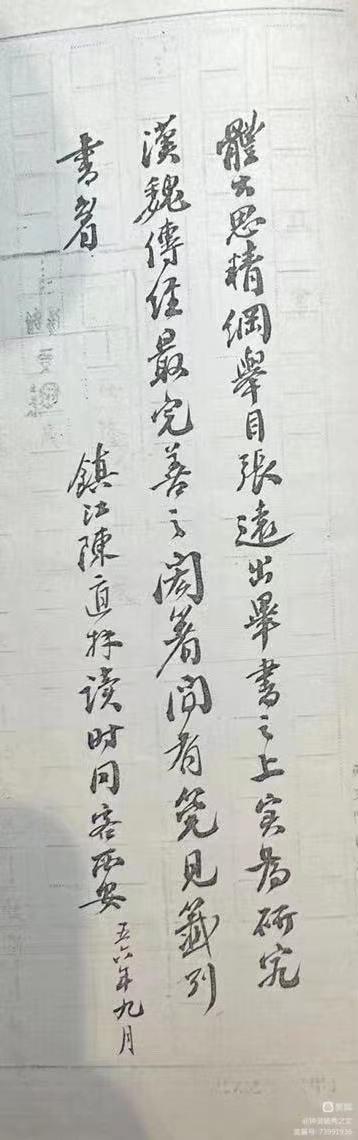 體大思精綱舉目張遠出畢書之上实為研究
漢魏傳经最完善之閎著间有筦見籤列
書眉
鎮江陳直拜读时同客西安 五六年九月
美篇
@钟灵毓秀之文
美篇号:73991936